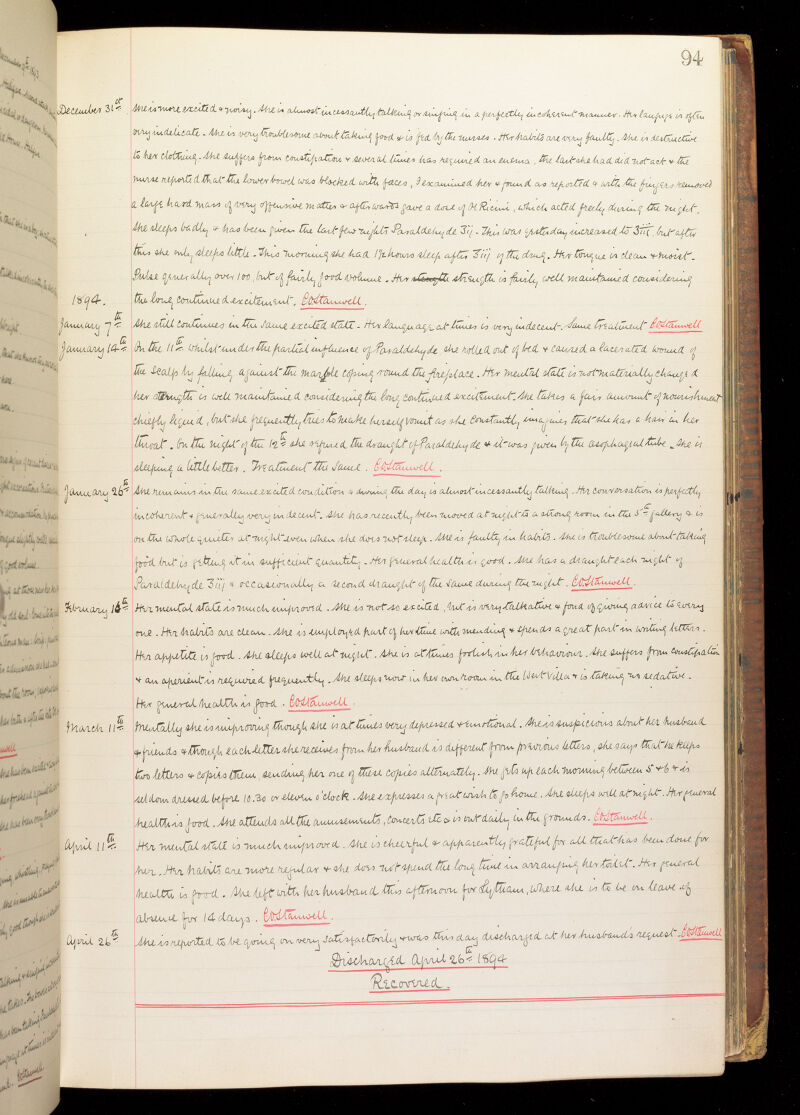 94
December 31st She is more excited & noisy. She is almost incessantly talking or singing in a perfectly incoherent manner. Her language is often
very indelicate. She is very troublesome about taking food & is fed by the nurses. Her habits are very faulty. She is destructive
to her clothing. She suffers from constipation & several times has required an enema, the last she had did not act & the
nurse reported that the lower bowel was blocked with faeces, I examined her & found as reported & with the fingers removed
a large hard mass of very offensive matter & afterwards gave a dose of Ol Ricini, which acted freely during the night.
She sleeps badly & has been given the last few nights Paraldehyde ʒij. This was yesterday increased to ʒiij, but after
this she only sleeps little. This morning she had 1½ hours sleep after ʒiij of the drug. Her tongue is clean & moist.
Pulse generally over 100, but of fairly good volume. Her strength is fairly well maintained considering
the long continued excitement. COStanwell.
1894.
January 7th She still continues in the same excited state. Her language at times is very indecent. Same treatment COStanwell
January 14th On the 11th whilst under the partial influence of Paraldehyde she rolled out of bed & caused a lacerated wound of
the scalp by falling against the marble coping round the fireplace. Her mental state is not materially changed
her strength is well maintained considering the long continued excitement. She takes a fair amount of nourishment
chiefly liquid, but she frequently tries to make herself vomit as she constantly imagines that she has a hair in her
throat. On the night of the 12th she refused the draught of Paraldehyde & it was given by the oesophageal tube. She is
sleeping a little better. Treatment the same. COStanwell.
January 26th She remains in the same excited condition & during the day is almost incessantly talking. Her conversation is perfectly
incoherent & generally very indecent. She has recently been moved at night to a strong room in the 5th gallery & is
on the whole quieter at night even when she does not sleep. She is faulty in habits. She is troublesome about taking
food but is getting it in sufficient quantity. Her general health is good. She has a draught each night of
Paraldehyde ʒiij & occasionally a second draught of the same during the night. COStanwell.
February 16th Her mental state is much improved. She is not so excited, but is very talkative & fond of giving advice to every
one. Her habits are clean. She is employed part of her time with mending & spends a great part in writing letters.
Her appetite is good. She sleeps well at night. She is at times foolish in her behaviour. She suffers from constipation
& an aperient is required frequently. She sleeps now in her own room in the West Villa & is taking no sedative.
Her general health is good. COStanwell.
March 11th Mentally she is improving though she is at times very depressed & emotional. She is suspicious about her husband
& friends & though each letter she receives from her husband is different from previous letters, she says that he keeps
two letters & copies them sending her one of these copies alternately. She gets up each morning between 5 & 6 & is
seldom dressed before 10.30 or eleven o'clock. She expresses a great wish to go home. She sleeps well at night. Her general
health is good. She attends all the amusements, concerts etc & is out daily in the grounds. COStanwell.
April 11th Her mental state is much improved. She is cheerful & apparently grateful for all that has been done for
her. Her habits are more regular & she does not spend the long time in arranging her toilet. Her general
health is good. She left with her husband this afternoon for Lytham, where she is to be on leave of
absence for 14 days. COStanwell.
April 26th She is reported to be going on very satisfactorily & was this day discharged at her husband's request. COStanwell
Discharged April 26th 1894
Recovered.